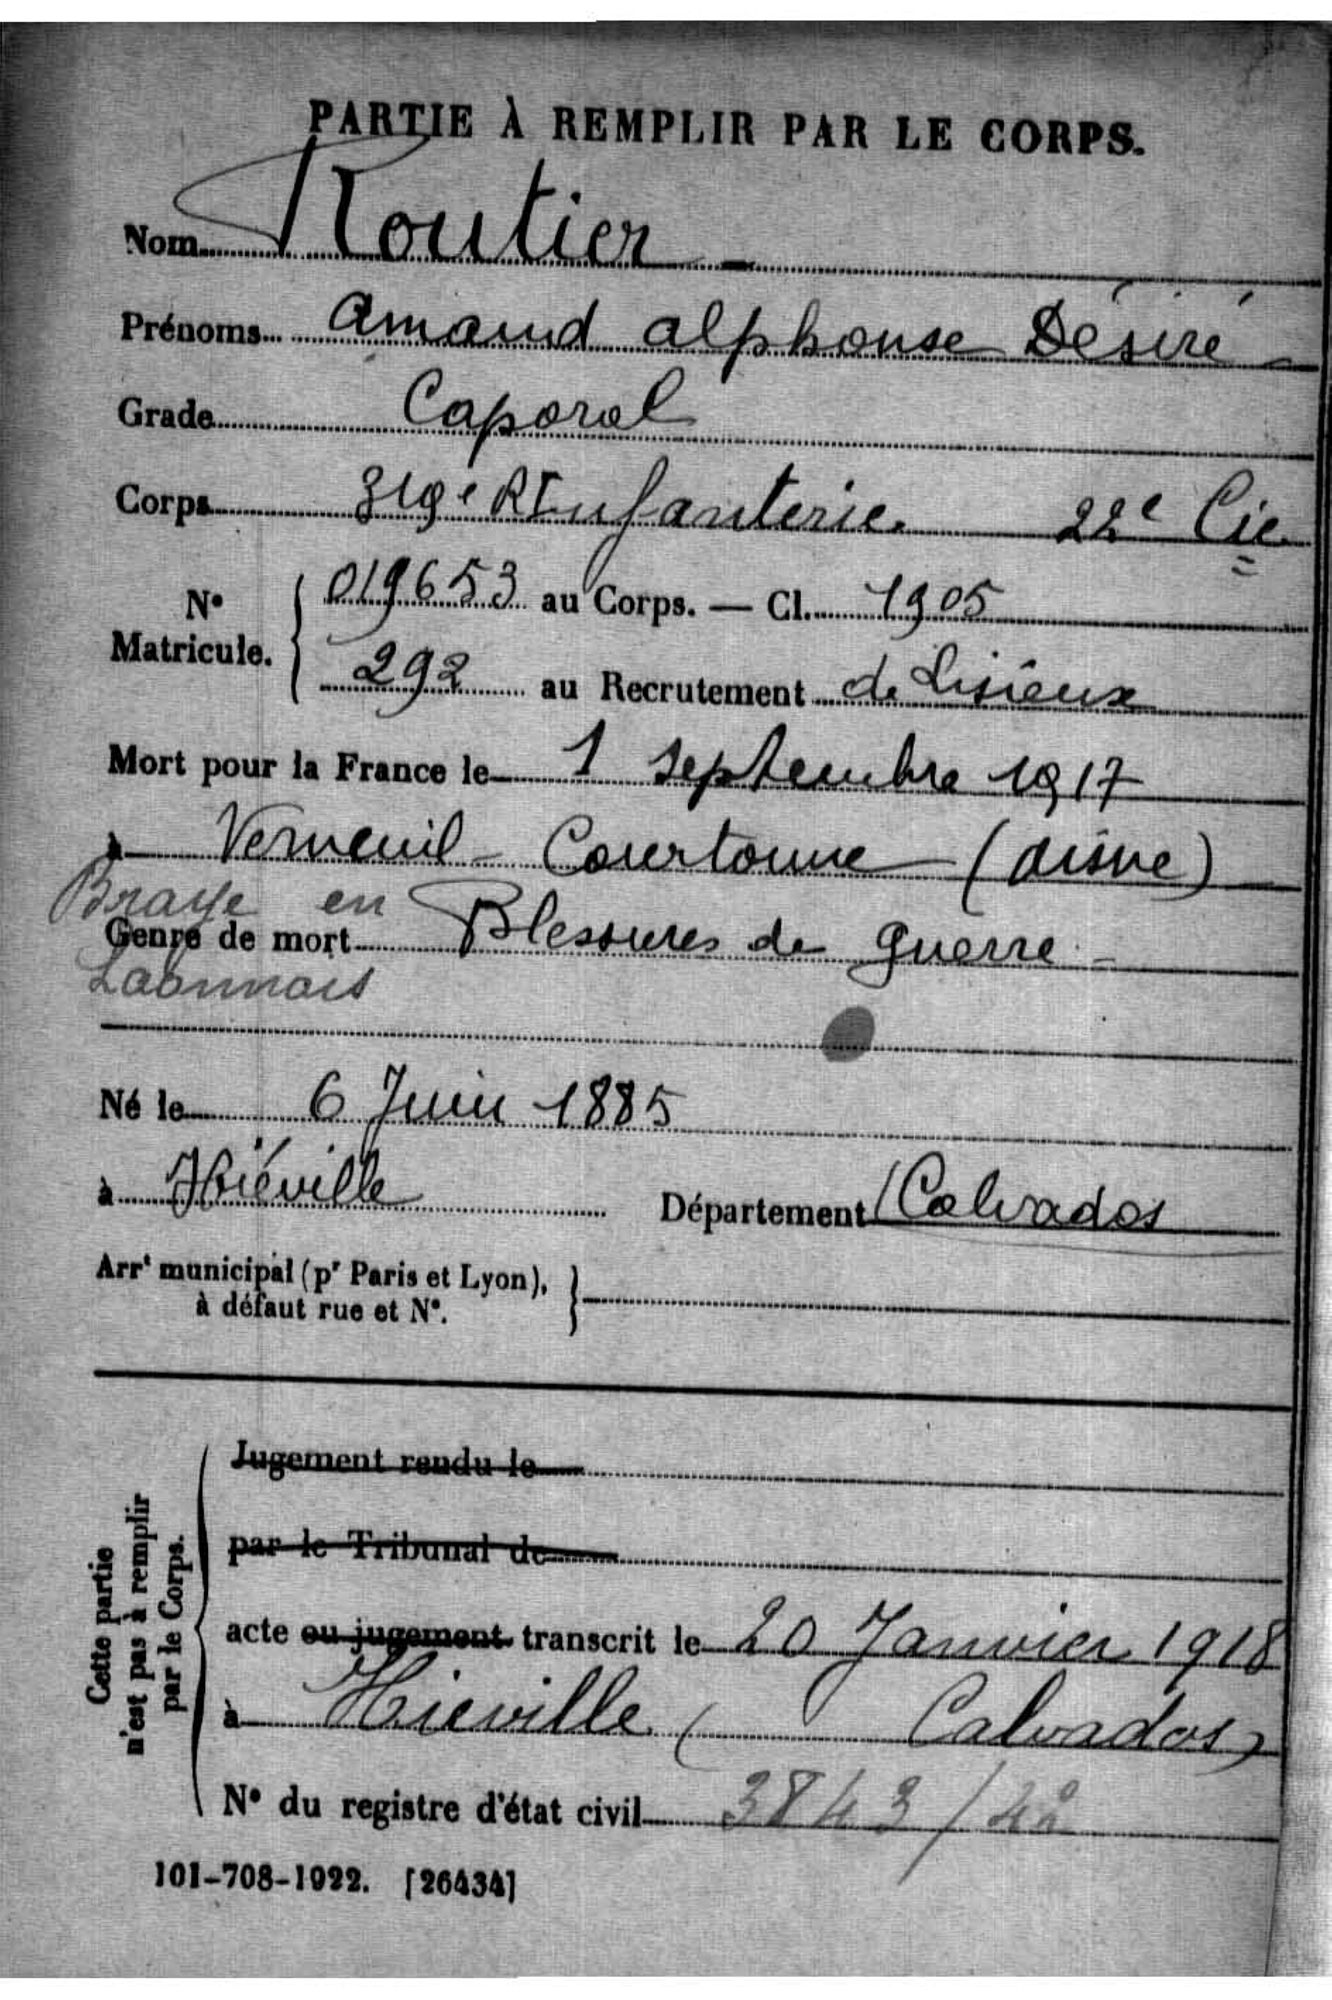 PARTIE À REMPLIR PAR LE CORPS.
Nom Routier -
Prénoms Amand Alphonse Désiré -
Grade Caporal
Corps 319e RInfanterie. 22e Cie
No Matricule. { 019653 au Corps. — Cl. 1905
292 au Recrutement de Lisieux
Mort pour la France le 1 septembre 1917
à Verneuil - Courtonne (Aisne)
Braye en
Genre de mort Blessures de guerre -
Laonnois
Né le 6 Juin 1885
à Hiéville Département (Calvados
Arrt municipal (pr Paris et Lyon), }
à défaut rue et No.
Cette partie
n'est pas à remplir
par le Corps.
Jugement rendu le
par le Tribunal de
acte ou jugement transcrit le 20 Janvier 1918
à Hieville (Calvados)
No du registre d'état civil 3843/42
101-708-1922. [26434]